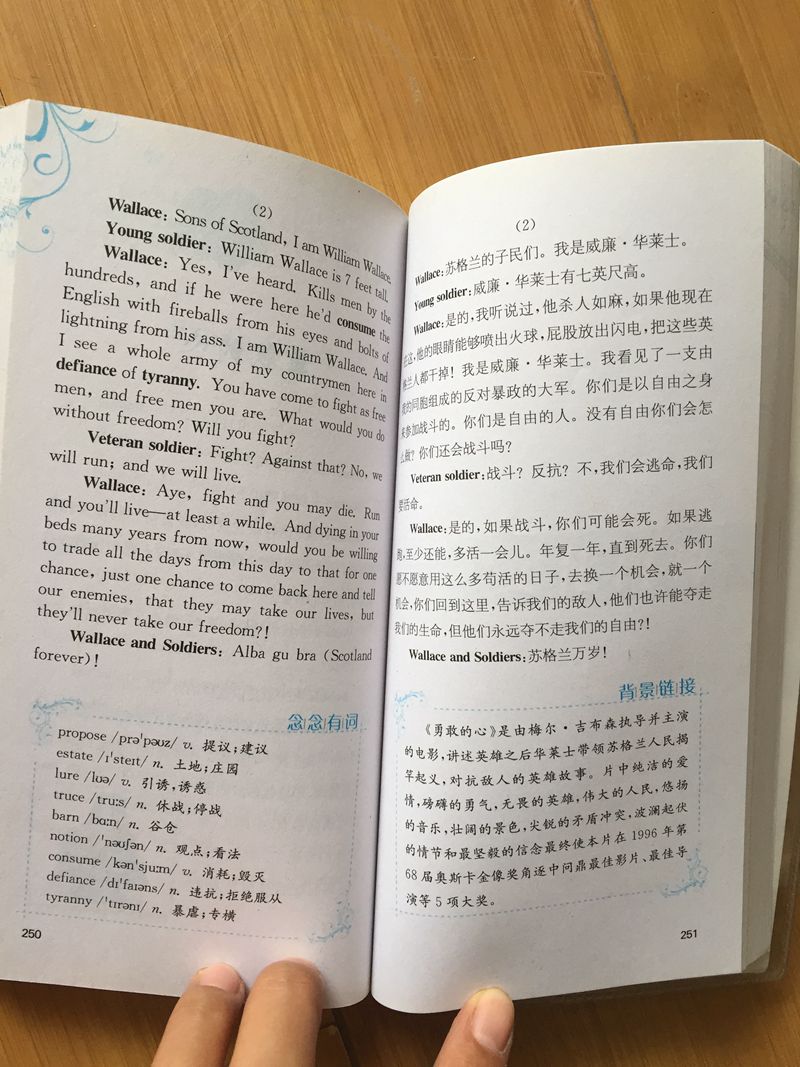 (2)
Wallace: Sons of Scotland, I am William Wallace.
Young soldier: William Wallace is 7 feet tall.
Wallace: Yes, I've heard. Kills men by the
hundreds, and if he were here he'd consume the
English with fireballs from his eyes and bolts of
lightning from his ass. I am William Wallace. And
I see a whole army of my countrymen here in
defiance of tyranny. You have come to fight as free
men, and free men you are. What would you do
without freedom? Will you fight?
Veteran soldier: Fight? Against that? No, we
will run; and we will live.
Wallace: Aye, fight and you may die. Run
and you'll live—at least a while. And dying in your
beds many years from now, would you be willing
to trade all the days from this day to that for one
chance, just one chance to come back here and tell
our enemies, that they may take our lives, but
they'll never take our freedom?!
Wallace and Soldiers: Alba gu bra (Scotland
forever)!
念念有词
propose /prə'pəuz/ v. 提议;建议
estate /ɪ'steɪt/ n. 土地;庄园
lure /luə/ v. 引诱,诱惑
truce /truːs/ n. 休战;停战
barn /bɑːn/ n. 谷仓
notion /'nəuʃən/ n. 观点;看法
consume /kən'sjuːm/ v. 消耗;毁灭
defiance /dɪ'faɪəns/ n. 违抗;拒绝服从
tyranny /'tɪrənɪ/ n. 暴虐;专横
250
(2)
Wallace:苏格兰的子民们。我是威廉·华莱士。
Young soldier:威廉·华莱士有七英尺高。
Wallace:是的,我听说过,他杀人如麻,如果他现在
在这,他的眼睛能够喷出火球,屁股放出闪电,把这些英
格兰人都干掉!我是威廉·华莱士。我看见了一支由
我的同胞组成的反对暴政的大军。你们是以自由之身
来参加战斗的。你们是自由的人。没有自由你们会怎
么做?你们还会战斗吗?
Veteran soldier:战斗?反抗?不,我们会逃命,我们
要活命。
Wallace:是的,如果战斗,你们可能会死。如果逃
跑,至少还能,多活一会儿。年复一年,直到死去。你们
愿不愿意用这么多苟活的日子,去换一个机会,就一个
机会,你们回到这里,告诉我们的敌人,他们也许能夺走
我们的生命,但他们永远夺不走我们的自由?!
Wallace and Soldiers:苏格兰万岁!
背景链接
《勇敢的心》是由梅尔·吉布森执导并主演
的电影,讲述英雄之后华莱士带领苏格兰人民揭
竿起义,对抗敌人的英雄故事。片中纯洁的爱
情,磅礴的勇气,无畏的英雄,伟大的人民,悠扬
的音乐,壮阔的景色,尖锐的矛盾冲突,波澜起伏
的情节和最坚毅的信念最终使本片在1996年第
68届奥斯卡金像奖角逐中问鼎最佳影片、最佳导
演等5项大奖。
251